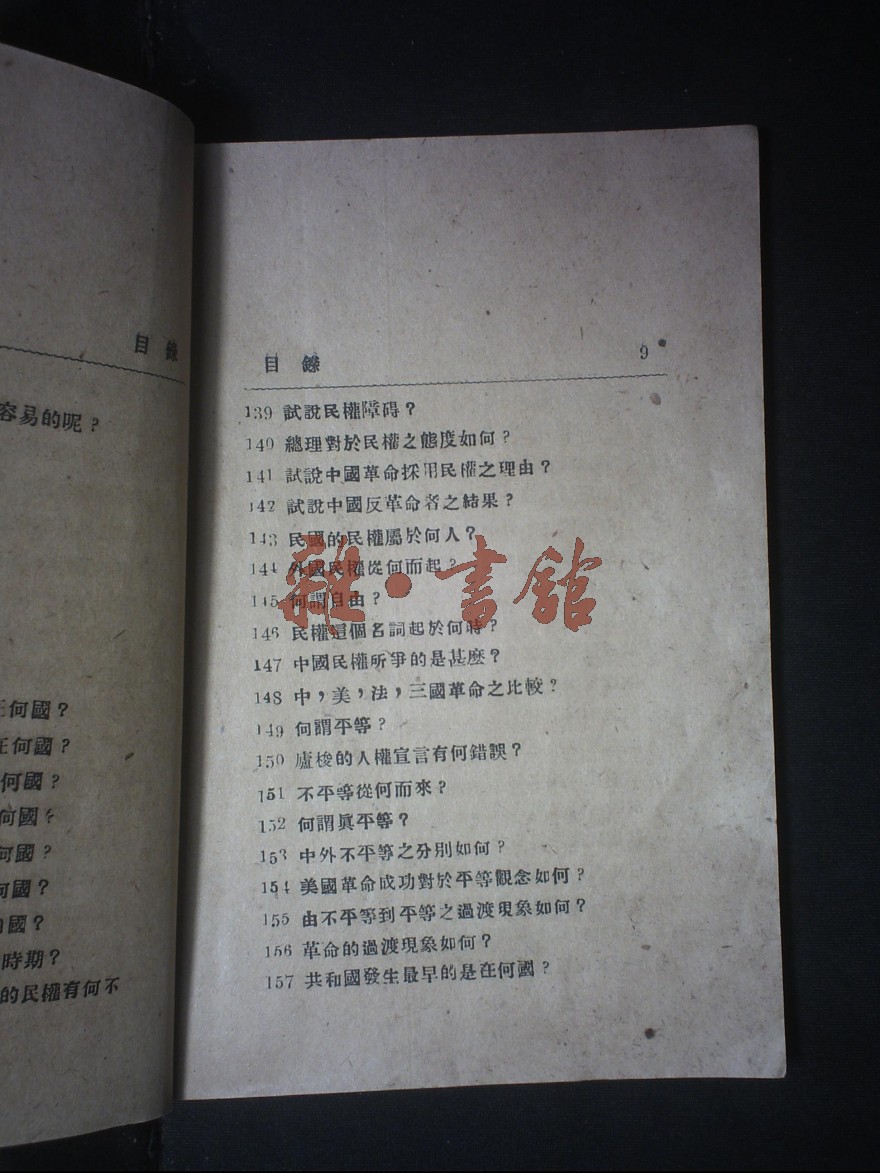 目錄
容易的呢？
何國？
何國？
何國？
何國？
何國？
何國？
國？
時期？
的民權有何不
目錄 9
139 試說民權障碍？
140 總理對於民權之態度如何？
141 試說中國革命採用民權之理由？
142 試說中國反革命者之結果？
143 民國的民權屬於何人？
144 外國民權從何而起？
145 何謂自由？
146 民權這個名詞起於何時？
147 中國民權所爭的是甚麽？
148 中，美，法，三國革命之比較？
149 何謂平等？
150 盧梭的人權宣言有何錯誤？
151 不平等從何而來？
152 何謂眞平等？
153 中外不平等之分別如何？
154 美國革命成功對於平等觀念如何？
155 由不平等到平等之過渡現象如何？
156 革命的過渡現象如何？
157 共和國發生最早的是在何國？
雜·書館